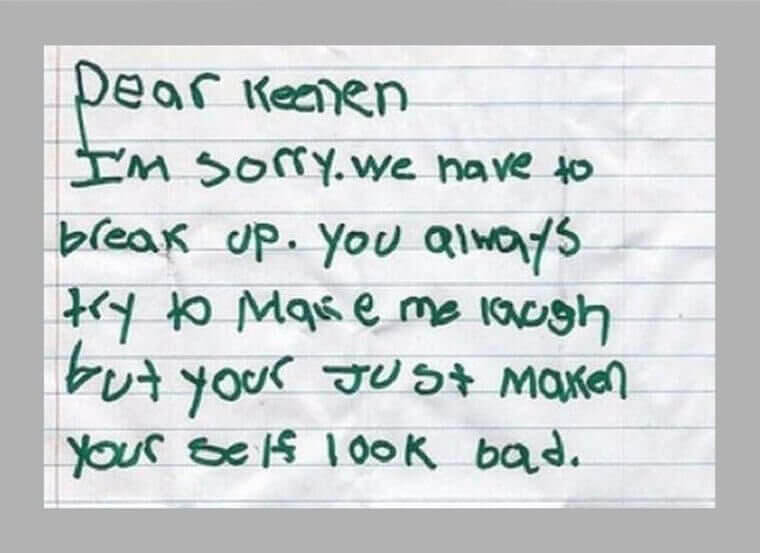 Dear Keenen
I'm sorry. we have to
break up. you always
try to Make me laugh
but your Just maken
your self look bad.